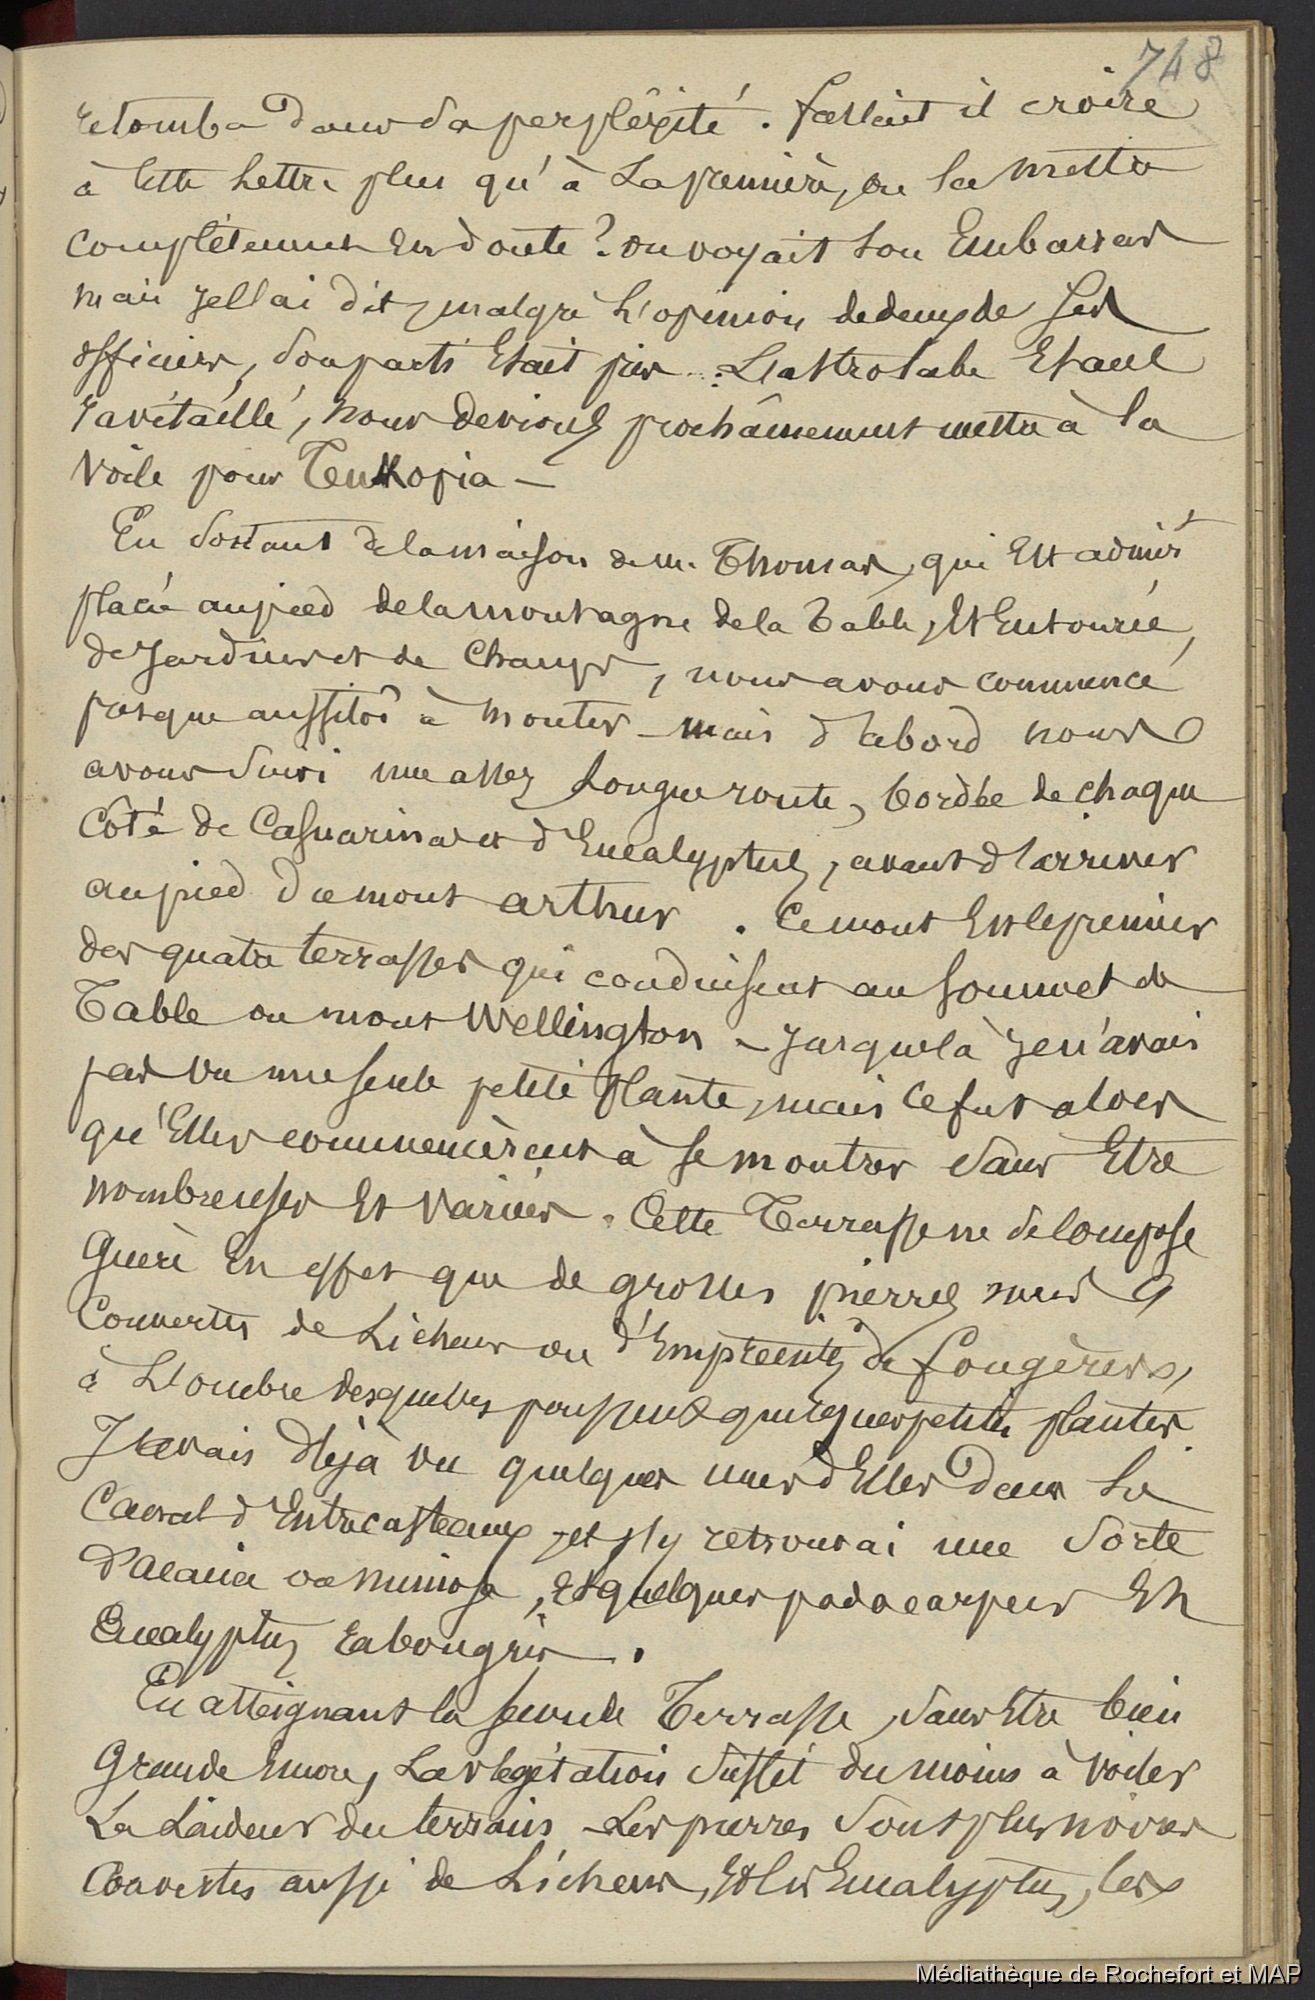 748
retomba dans sa perpléxité. fallait il croire
à cette lettre plus qu'à La première, ou la mettre
complétement en doute ? on voyait son Embarras
mais je l'ai dit, malgré L'opinion de deux de ses
officiers, son parti Etait pris . L'astrolabe Etant
ravétaillé, nous devions prochâinement mettre à la
voile pour Teukopia —
En sortant de la maison de m. Thomas, qui Est admirt
placée au pied de la montagne de la Table, Et Entourée,
de Jardins et de Champs, nous avons commencé
presque aussitôt à monter — mais d'abord nous
avons suivi une assez Longue route, bordée de chaque
Côté de Casuarinas et d'Eucalyptus, avant d'arriver
au pied du mont arthur . Ce mont Est le premier
des quatre terrasses qui conduisent au sommet de
Table ou mont Wellington — Jusque là Je n'avais
pas vu une seule petite plante, mais ce fut alors
qu'Elles commencèrent à se montrer sans Etre
nombreuses Et variées . Cette Terrasse ne se compose
Guère En effet que de grosses pierres nues
Couvertes de Lichens ou d'Empreintes de fougères,
à L'ombre desquelles poussent quelques petites plantes
J'avais déjà vu quelques unes d'Elles dans Le
Canal d'Entrecasteaux, et j'y retrouvai une sorte
d'acacia ou mimosa, Et quelques podocarpus Et
Eucalyptus rabougris .
En atteignant la seconde Terrasse, sans Etre bien
Grande Encore, La végétation suffit du moins à voiler
La Laideur du terrain — Les pierres sont plus noires
Couvertes aussi de Lichens, Et les Eucalyptus, les
Médiathèque de Rochefort et MAP